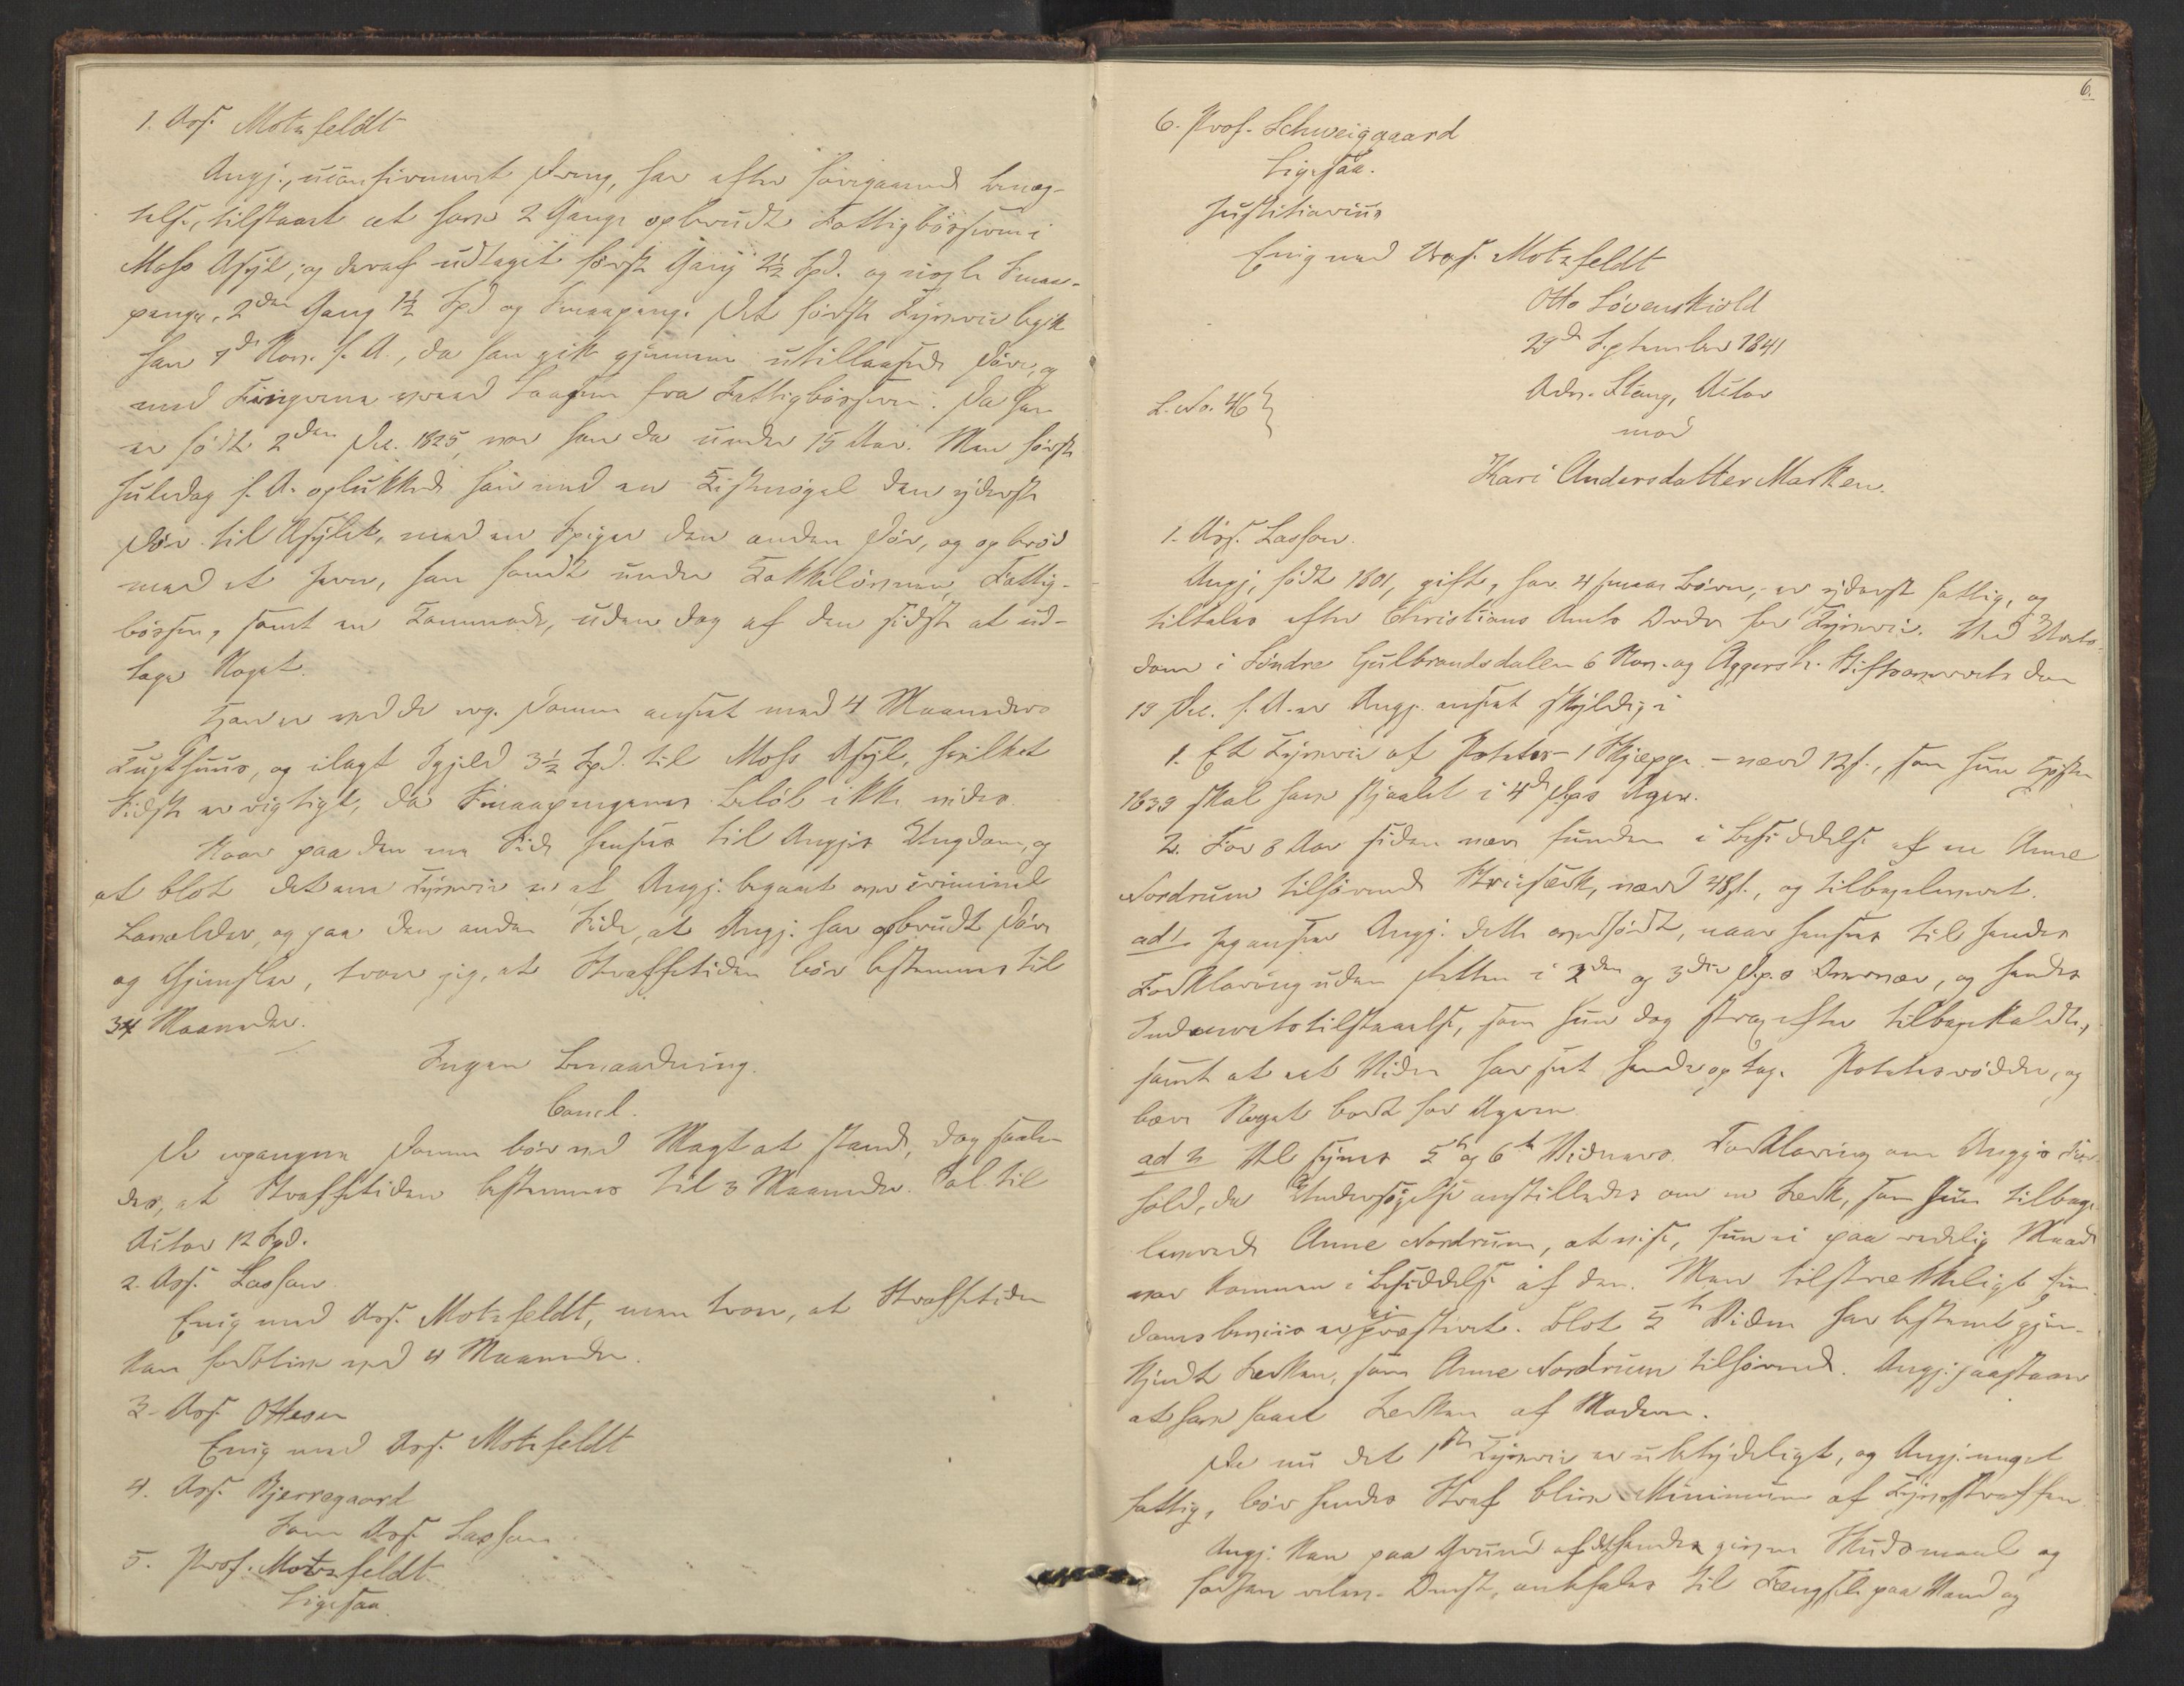 1. Ass. Motzfeldt
Angj., uconfirmeret Dreng, har efter foregaaende Benæg-
telse, tilstaaet at have 2 Gange opbrudt Fattigbøsserne i
Moss Asyl, og deraf udtaget første Gang 2½ Spd. og nogle Smaa-
penge, 2den Gang 1½ Spd og Smaapenge. Det første Tyverie begik
han 7de Nov. f. A., da han gik gjennem utillaasede Døre, og
med Fingrene vred Laagene fra Fattigbøsserne. Da han
er født 2den Dec. 1825, var han da under 15 Aar. Men første
Juledag f. A. oplukkede han med en Kistenøgel den yderste
Dør til Asylet, med en Spiger den anden Dør, og opbrød
med et Jern, han fandt under Kakkelovnen, Fattig-
bøssen, samt en Commode, uden dog af den sidste at ud-
tage Noget.
Han er ved de uvg. Domme anseet med 4 Maaneders
Tugthuus, og ilagt Igjeld 3½ Spd. til Moss Asyl, hvilket
Sidste er rigtigt, da Smaapengenes Beløb ikke vides.
Naar paa den ene Side henses til Angjs Ungdom, og
at blot det ene Tyverie er af Angj. begaaet over criminel
Lavalder, og paa den anden Side, at Angj. har opbrudt Døre
og Gjemsler, troer jeg, at Straffetiden bør bestemmes til
3 Maaneder.
Ingen Benaadning.
Concl.
De upaagjen Domme bør ved Magt at stande, dog saale-
des, at Straffetiden bestemmes til 3 Maaneder. Sal. til
Actor 12 Spd.
2. Ass. Lasson
Enig med Ass. Motzfeldt, men troer, at Straffetiden
kan forblive ved 4 Maaneder.
3. Ass. Ottesen
Enig med Ass. Motzfeldt
4. Ass. Bjerregaard
Som Ass. Lasson
5. Prof. Motzfeldt.
Ligesaa.
6.
6. Prof. Schweigaard
Ligesaa.
Justitiarius
Enig med Ass. Motzfeldt
Otto Løvenskiold
29de September 1841
L. No. 46
Adv. Stang, Actor
mod
Kari Andersdatter Marken.
1. Ass. Lasson.
Angj., født 1801, gift, har 4 smaae Børn, er yderst fattig, og
tiltales efter Christians Amts Ordre for Tyverie. Ved Extra-
dom i Søndre Gulbrandsdalen 6 Nov. og Aggersh. Stiftsoverrets den
19 Dec. f. A. er Angj. anseet skyldig i
1. Et Tyverie af Poteter – 1 Skjeppe – værd 12 s., som hun Høsten
1839 skal have stjaalet i 4de Dps Ager.
2. For 3 Aar siden være funden i Besiddelse af en Anne
Nordrum tilhørende Striesærk, værd 48 s., og tilbageleveret.
ad 1 Jeg anseer Angj. dette overført, naar henses til hendes
Forklaring uden Retten i 2den og 3die Dp.s Overvær, og hendes
Indenretstilstaaelse, som hun dog strax efter tilbagekaldte,
samt at eet Vidne har seet hende optage Potetesrødder, og
bære Noget bort fra Ageren.
ad 2 Vel synes 5te og 6te Vidners Forklaring om Angjs For-
hold, da Undersøgelse anstilledes om en Særk, som hun tilbage-
leverede Anne Nordrum, at vise, hun ei paa redelig Maade
var kommen i Besiddelse af den. Men tilstrækkeligt Eien-
domsbeviis er ei præsteret. Blot 5te Vidne har bestemt gjen-
kjendt Særken, som Anne Nordrum tilhørende. Angj. paastaaer
at have faaet Særken af Moderen.
Da nu det 1ste Tyverie er ubetydeligt, og Angj. meget
fattig, bør hendes Straf blive Minimum af Tyvsstraffen.
Angj. kan paa Grund af det hende givne Skudsmaal og
Overst. ansees til Fængsel paa Vand og